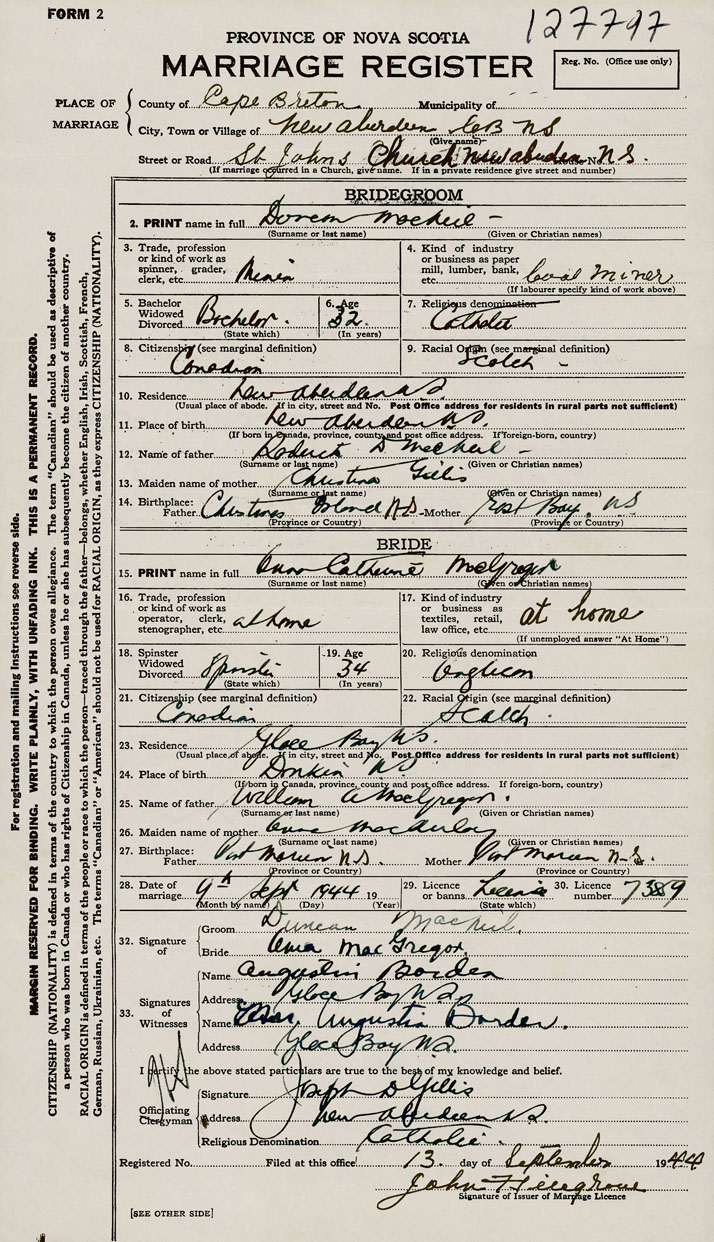 FORM 2
127797
PROVINCE OF NOVA SCOTIA
MARRIAGE REGISTER
Reg. No. (Office use only)
PLACE OF MARRIAGE
County of Cape Breton Municipality of
City, Town or Village of New Aberdeen CB NS
(Give name)
Street or Road St Johns Church New Aberdeen No. N.S.
(If marriage occurred in a Church, give name. If in a private residence give street and number)
BRIDEGROOM
2. PRINT name in full Macneil
(Surname or last name) (Given or Christian names)
3. Trade, profession or kind of work as spinner, grader, clerk, etc. Miner
4. Kind of industry or business as paper mill, lumber, bank, etc. Coal Miner
(If labourer specify kind of work above)
5. Bachelor Widowed Divorced Bachelor.
(State which)
6. Age 32.
(In years)
7. Religious denomination Catholic
8. Citizenship (see marginal definition) Canadian
9. Racial Origin (see marginal definition) Scotch
10. Residence New Aberdeen NS.
(Usual place of abode. If in city, street and No. Post Office address for residents in rural parts not sufficient)
11. Place of birth New Aberdeen NS.
(If born in Canada, province, county and post office address. If foreign-born, country)
12. Name of father Roderick D Macneil
(Surname or last name) (Given or Christian names)
13. Maiden name of mother Christina Gillis
(Surname or last name) (Given or Christian names)
14. Birthplace: Father Christmas Island NS Mother Bay. NS
(Province or Country) (Province or Country)
BRIDE
15. PRINT name in full Anna Catherine McGregor
(Surname or last name) (Given or Christian names)
16. Trade, profession or kind of work as operator, clerk, stenographer, etc. at home
17. Kind of industry or business as textiles, retail, law office, etc. at home
(If unemployed answer "At Home")
18. Spinster Widowed Divorced Spinster
(State which)
19. Age 34
(In years)
20. Religious denomination Anglican
21. Citizenship (see marginal definition) Canadian
22. Racial Origin (see marginal definition) Scotch.
23. Residence Glace Bay NS.
(Usual place of abode. If in city, street and No. Post Office address for residents in rural parts not sufficient)
24. Place of birth Donkin NS
(If born in Canada, province, county and post office address. If foreign-born, country)
25. Name of father William A MacGregor.
(Surname or last name) (Given or Christian names)
26. Maiden name of mother Anna MacAulay
(Surname or last name) (Given or Christian names)
27. Birthplace: Father Port Morien N.S. Mother Port Morien N.S.
(Province or Country) (Province or Country)
28. Date of marriage 9th Sept 1944 19
(Month by name) (Day) (Year)
29. Licence or banns Licence
(State which)
30. Licence number 7389
32. Signature of
Groom Duncan Macneil.
Bride Anna MacGregor
33. Signatures of Witnesses
Name Augustin Borden
Address Glace Bay NS
Name Mrs. Augustin Borden.
Address Glace Bay NS.
I certify the above stated particulars are true to the best of my knowledge and belief.
Officiating Clergyman
Signature Joseph D Gillis
Address New Aberdeen NS.
Religious Denomination Catholic.
Registered No. Filed at this office 13. day of September 1944
John
Signature of Issuer of Marriage Licence
[SEE OTHER SIDE]
For registration and mailing instructions see reverse side.
MARGIN RESERVED FOR BINDING. WRITE PLAINLY, WITH UNFADING INK. THIS IS A PERMANENT RECORD.
CITIZENSHIP (NATIONALITY) is defined in terms of the country to which the person owes allegiance. The term "Canadian" should be used as descriptive of
a person who was born in Canada or who has rights of Citizenship in Canada, unless he or she has subsequently become the citizen of another country.
RACIAL ORIGIN is defined in terms of the people or race to which the person—traced through the father—belongs, whether English, Irish, Scottish, French,
German, Russian, Ukrainian, etc. The terms "Canadian" or "American" should not be used for RACIAL ORIGIN, as they express CITIZENSHIP (NATIONALITY).